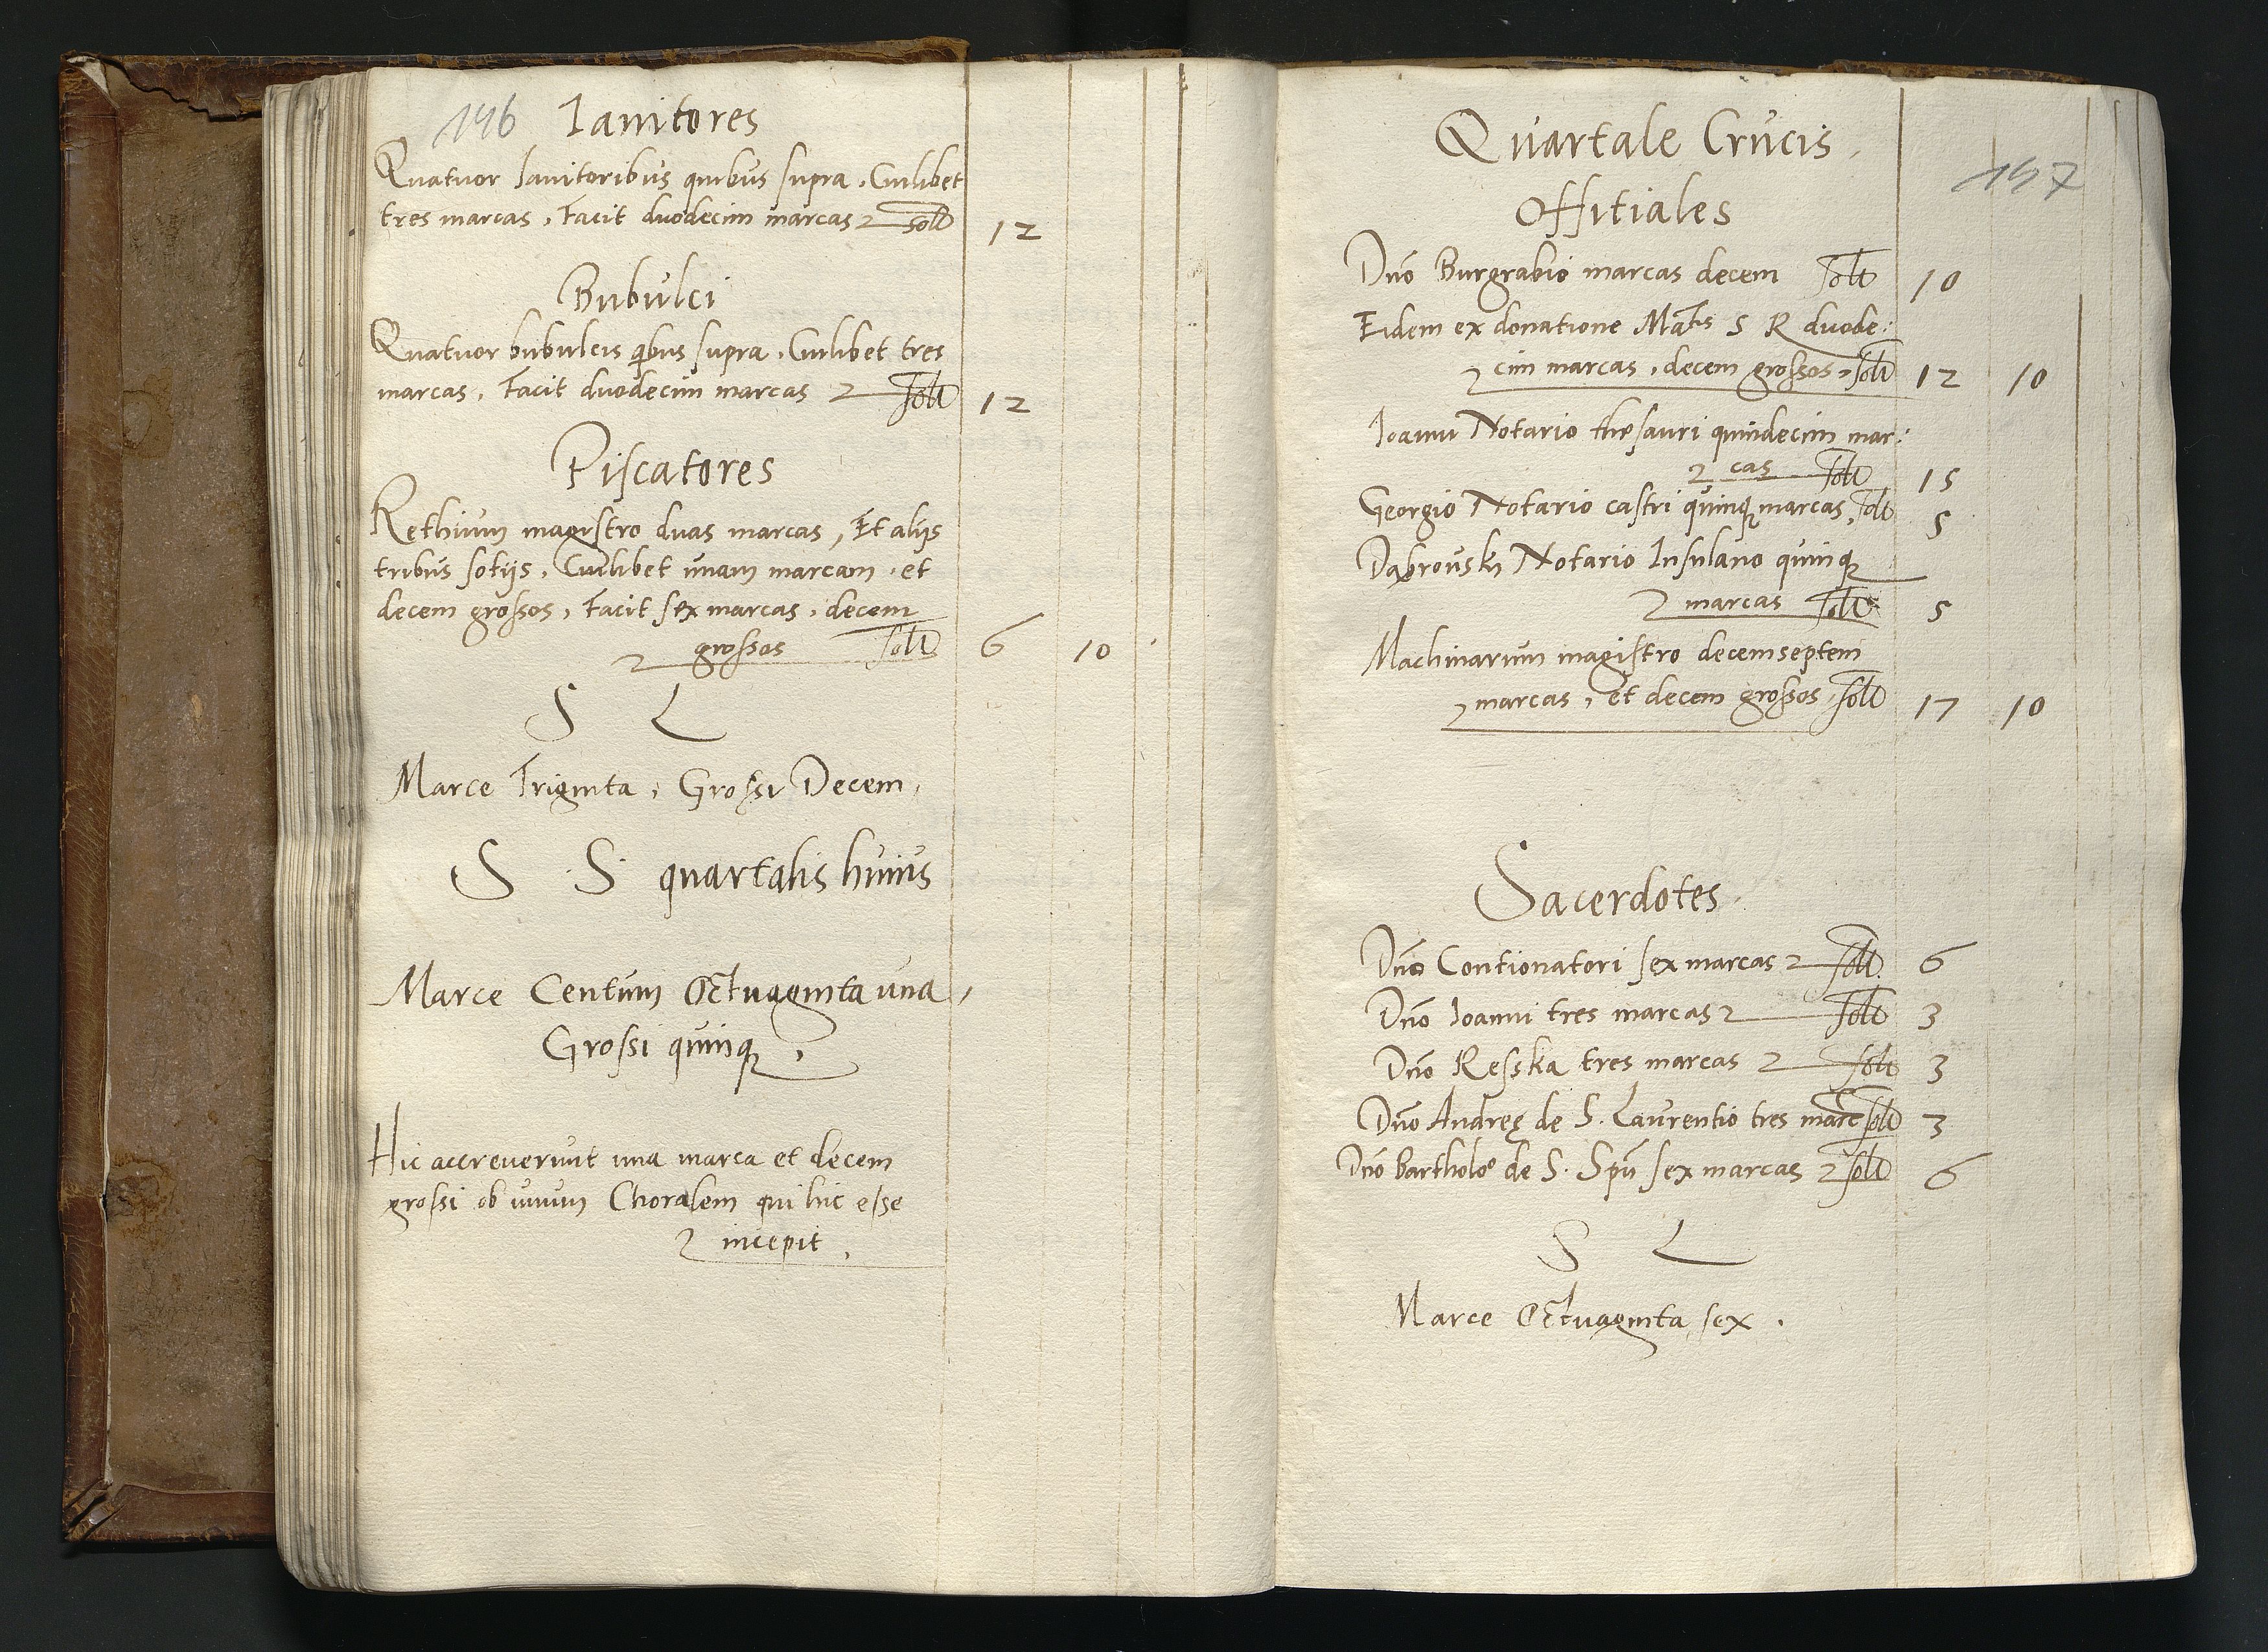 146 Ianitores
Quatuor Ianitoribus quibus supra. Cuilibet
tres marcas, Facit duodecim marcas solt 12
Bubulci
Quatuor bubulcis qibus supra. Cuilibet tres
marcas, Facit duodecim marcas solt 12
Piscatores
Rethium magistro duas marcas, Et alijs
tribus sotijs, Cuilibet unam marcam, et
decem grossos, Facit sex marcas, decem
grossos solt 6 10
S L
Marce Triginta, Grossi Decem,
S S quartalis huius
Marce Centum Octuaginta una,
Grossi quinq,
Hic accreverunt una marca et decem
grossi ob unum Choralem qui hic esse
incepit,
Quartale Crucis,
157
Offitiales
Dno Burgrabio marcas decem solt 10
Eidem ex donatione Matis S R duode:
cim marcas, decem grossos, solt 12 10
Ioanni Notario thesauri quindecim mar:
cas solt 15
Georgio Notario castri quinq marcas, solt 5
Dąbrouski Notario Insulano quinq
marcas solt 5
Machinarum magistro decemseptem
marcas, et decem grossos, solt 17 10
Sacerdotes.
Dno Contionatori sex marcas solt. 6
Dno Ioanni tres marcas solt 3
Dno Resska tres marcas solt 3
Dno Andreę de S. Laurentio tres marc solt 3
Dno Bartholo de S. Spu sex marcas solt 6
S L
Marce Octuaginta sex.